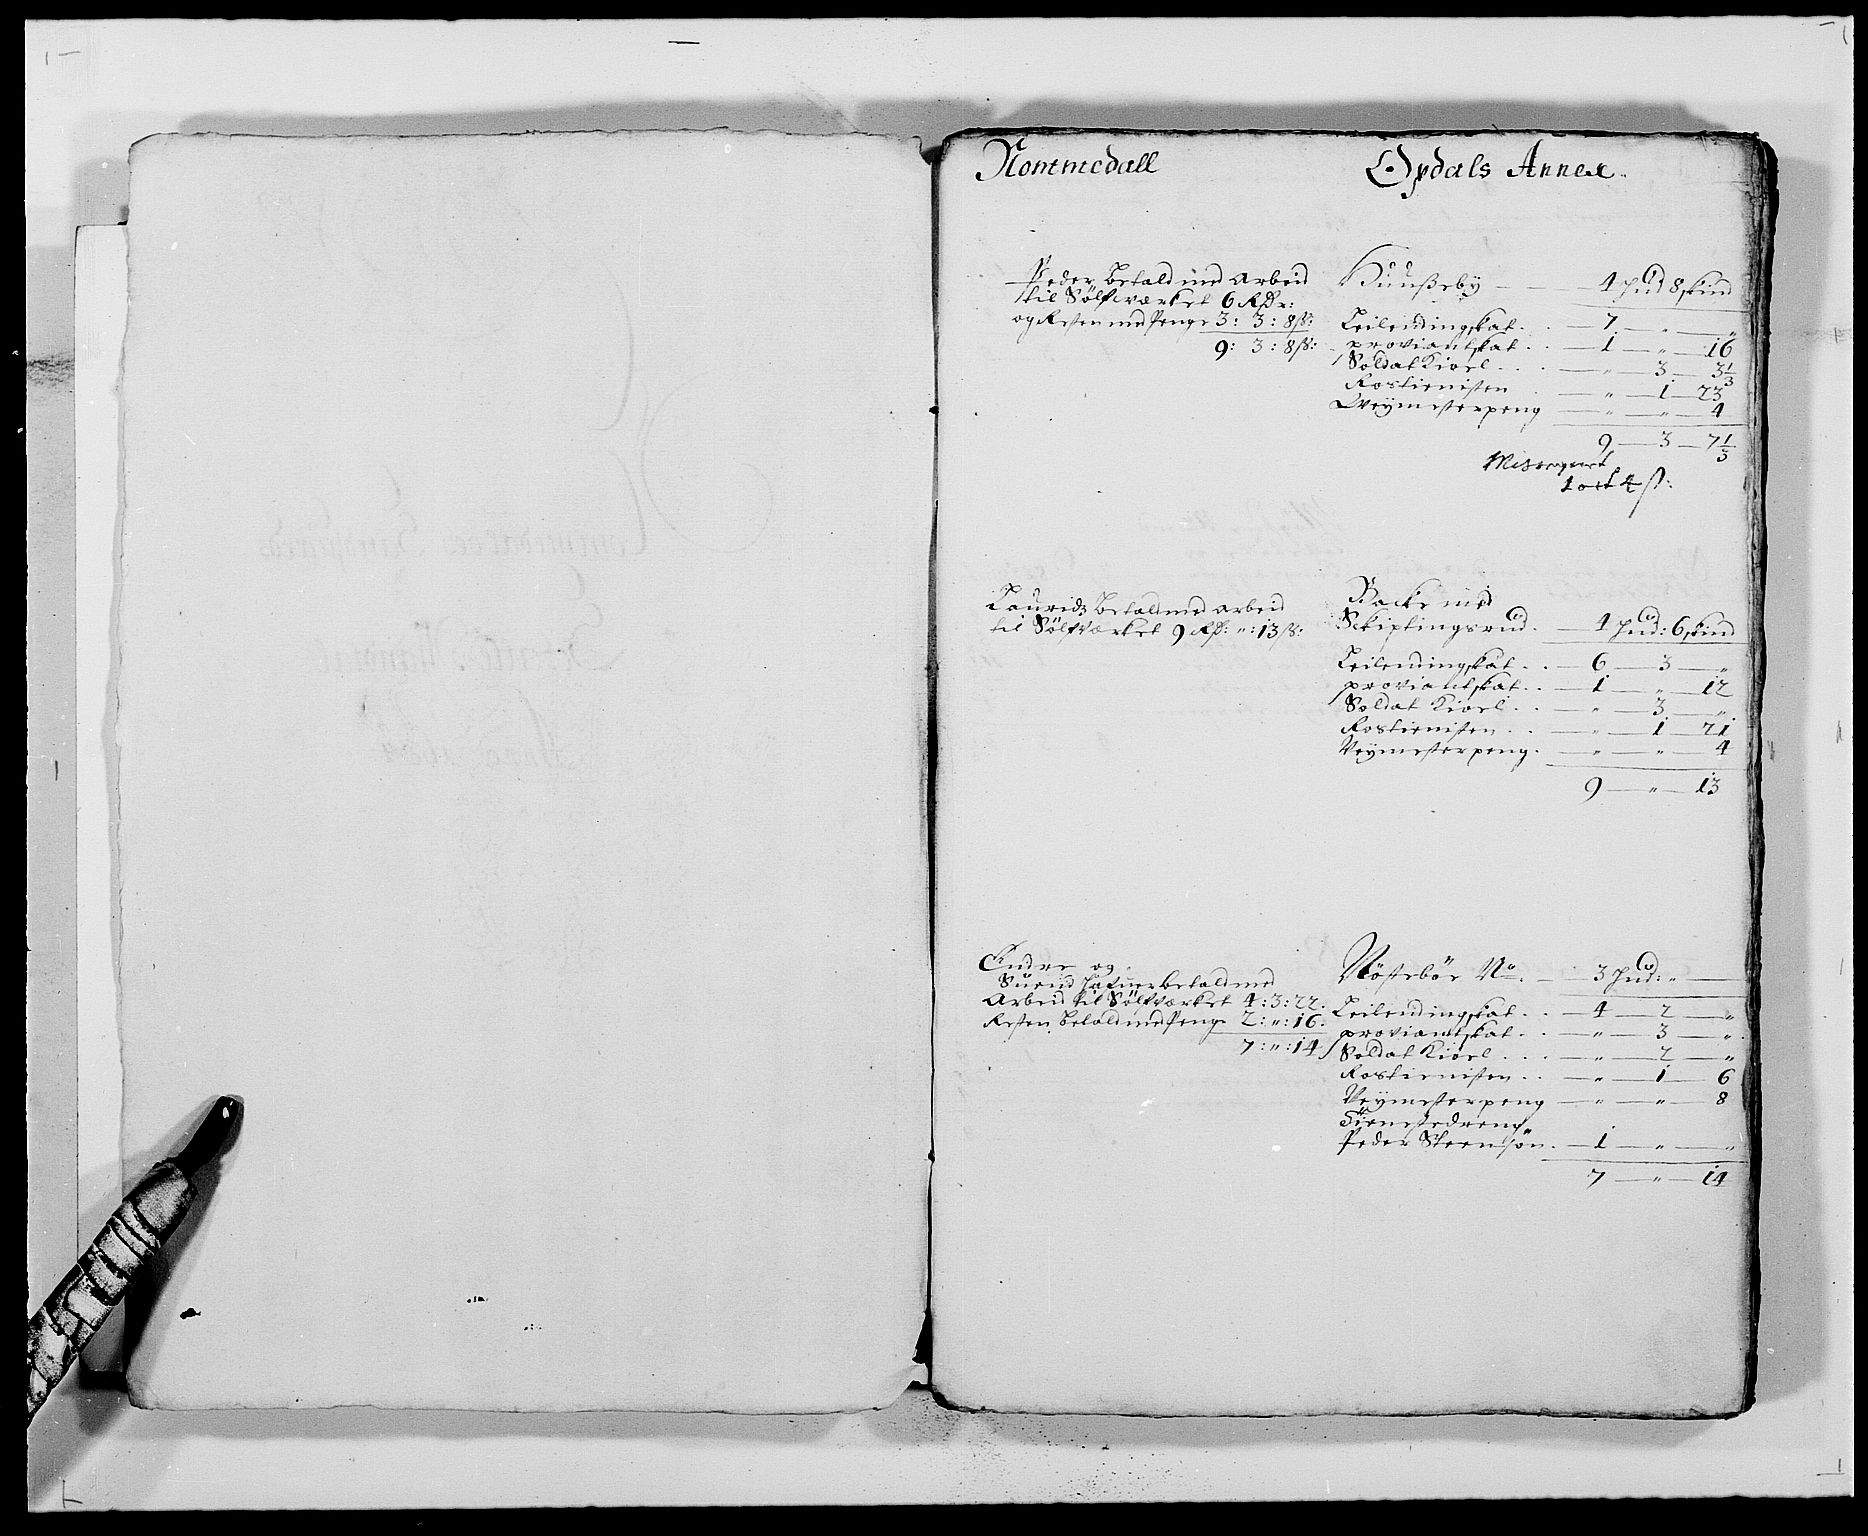 Nommedall
Opdals Annex
Peder, Betald med Arbeid
til Sølfværket 6 Rdr:
og Resten med Penge 3: 3: 8 ß:
9: 3: 8 ß:
Huußeby — 4 hud 8 skind
Leilendingskat . . 7 — „ — „
proviantskat . . 1 — „ — 16
Soldat Kioel . . . „ — 3 — 3 1/3
Rostienisten — „ — 1 — 23
Weymesterpeng — „ — „ — 4
9 — 3 — 7 1/3
1 ort 4 ß:
Lauridz Betald med arbeid
til Sølfværket 9 Rd: „: 13 ß:
Backe med
Skiptingsrud — 4 hud: 6 skind
Leilendingskat . . 6 — 3 — „
proviantskat . . 1 — „ — 12
Soldat Kioel . . „ — 3 — „
Rostienisten . . „ — 1 — 21
Veymesterpeng . „ — „ — 4
9 — „ — 13
Endre og
Suend hafuer betald med
Arbeid til Sølfværket 4: 3: 22.
Resten Betald med Peng 2: „: 16.
7: „: 14
Nöstebör No. — 3 hud: „ —
Leilendingskat . . 4 — 2 — „
proviantskat . . „ — 3 — „
Soldat Kioel . . . „ — 2 — „
Rostienisten . . „ — 1 — 6
Veymesterpeng — „ — „ — 8
Tienistedreng
Peder Steensøn . 1 — „ — „
7 — „ — 14